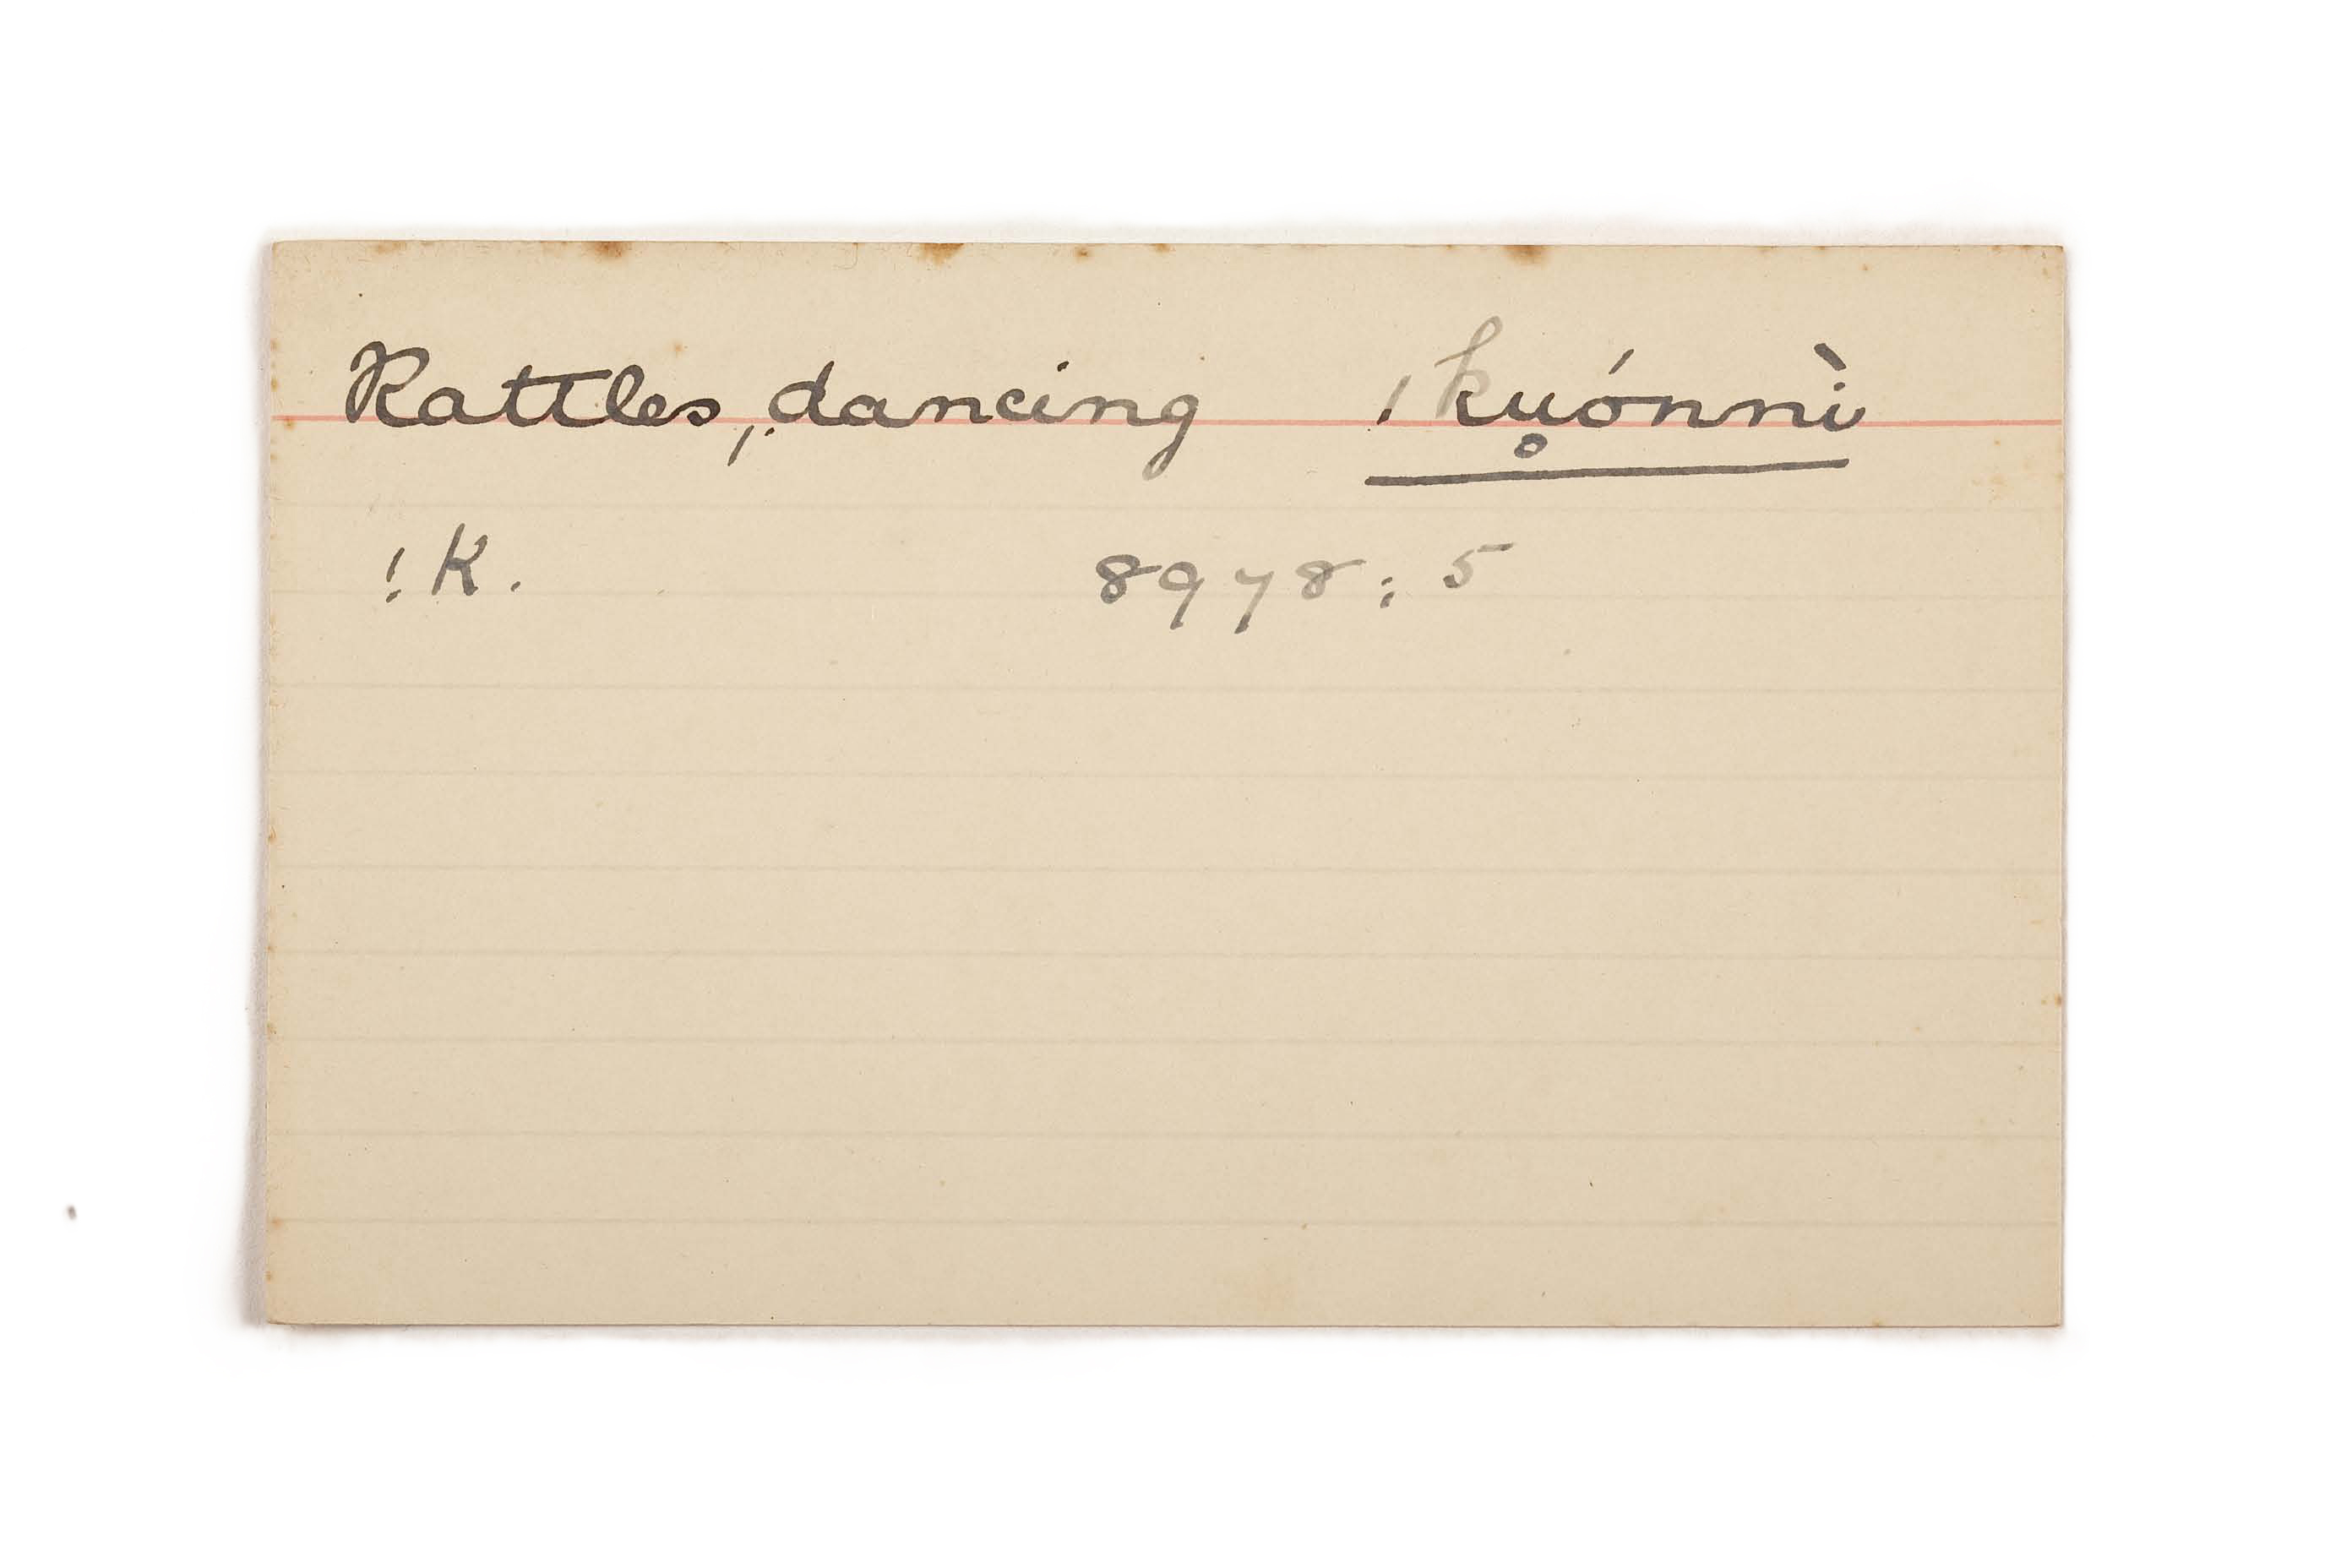 Rattles, dancing ǀkụ̊ónnì
!K. 8978: 5